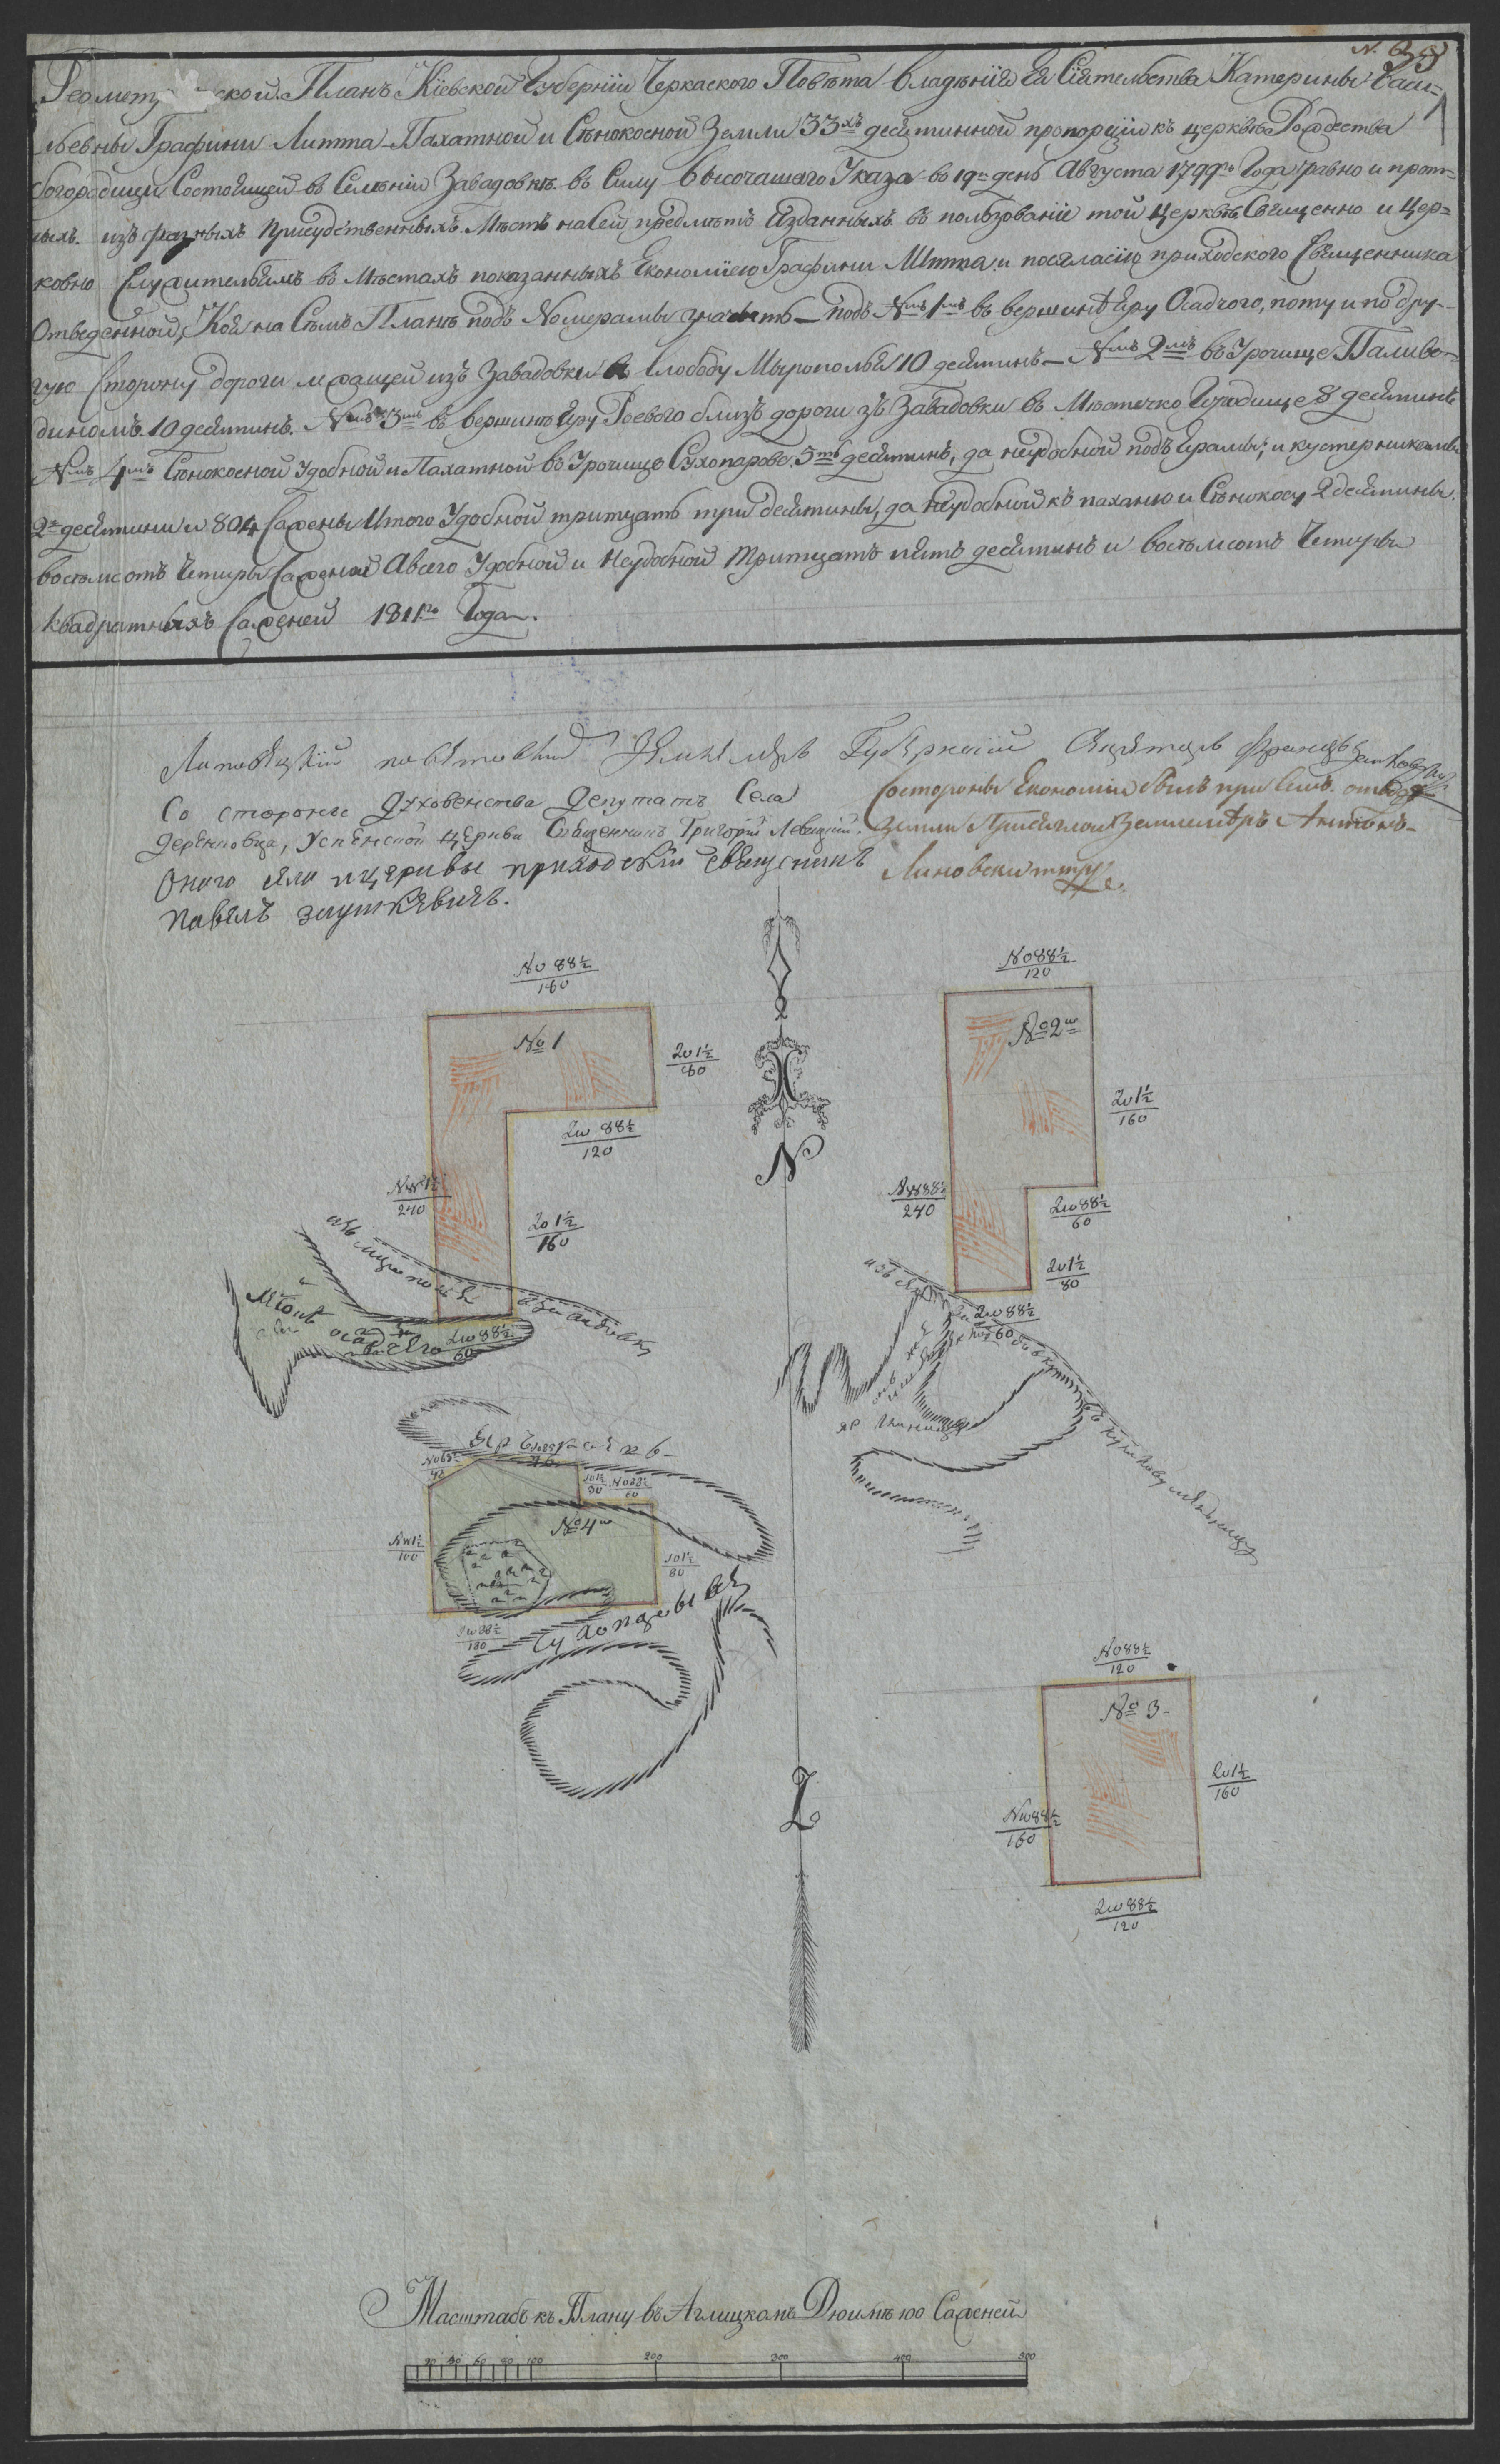 N. 39
Геомет ской Планъ Кіевской Губерніи Черкаского Повѣта Владѣнія Ея Сіятельства Катерины Васи-
льевны Графини Литта Пахатной и Сѣнокосной Земли 33хъ десятинной пропорціи къ церквѣ Рождества
богородицы Состоящей въ Селеніи Завадовкѣ въ Силу Высочашаго Указа въ 19 день Августа 1799го Года равно и прот-
чыхъ изъ разныхъ Присудственныхъ Мѣстъ на Сей предмѣтъ Изданныхъ въ пользованіе той Церквѣ Священно и Цер=
ковно Служительямъ въ Мѣстахъ показанныхъ Економіею Графини Литта и посогласію приходского Священника
Отведенной, Кои на Семъ Планѣ подъ Номерамы значатъ — подъ Nмъ 1мъ въ вершинѣ Яру Осадчого, поту и по дру-
гую Сторону дороги лежащей изъ Завадовки въ Слободу Мырополья 10 десятинъ — Nмъ 2мъ въ Урочище Паливо-
диномъ 10 десятинъ. Nмъ 3мъ въ вершинѣ Яру Роевого близъ дороги зъ Завадовки въ Мѣстечко Городище 8 десятинъ
Nмъ 4мъ Сѣнокосной Удобной и Пахатной въ Урочище Сухопарово 5ть десятинъ, да неудобной подъ Ярамы, и кустерникамы
2е десятины и 804 Сажены Итого Удобной тритцать три десятины, да неудобной къ паханю и Сѣнокосу 2 десятины
восемьсотъ Четыры Сажени А всего Удобной и Неудобной Тритцать пять десятинъ и восемсотъ Четыры
квадратныхъ Саженей 1811го Года.
Липовецкій повѣтовый Землемѣръ Губернскій Секретарь Францъ
Со стороны Духовенства Депутатъ Села
Деренковца, Успенской церкви Священникъ Григорій Левицкій.
Оного села и церквы приходскій священникъ
Павелъ
Состороны Економіи былъ при Семъ отводѣ
Земли Присяжный Землемѣръ Антонъ
Линовски
No 88½
160
No 1
201½
80
2w 88½
120
Nw 1½
240
201½
160
изъ мырополья
въ завадовку
осадчего
2w88½
60
No88½
120
No 2
201½
160
Nw88½
240
2w88½
60
201½
80
2w88½
60
N
яр
Nw1½
100
No 4
101½
80
2w88½
180
No88½
120
No 3
201½
160
Nw88½
160
2w88½
120
Z
Масштабъ къ Плану въ Аглицкомъ Дюймѣ 100 Саженей
20 40 60 80 100 200 300 400 500